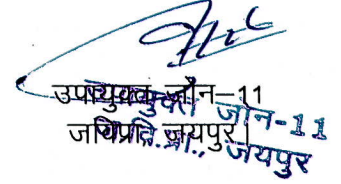 उपायुक्त जौन-11
जविप्रा, जयपुर।
उपायुक्त जोन-11
ज.वि.प्रा., जयपुर